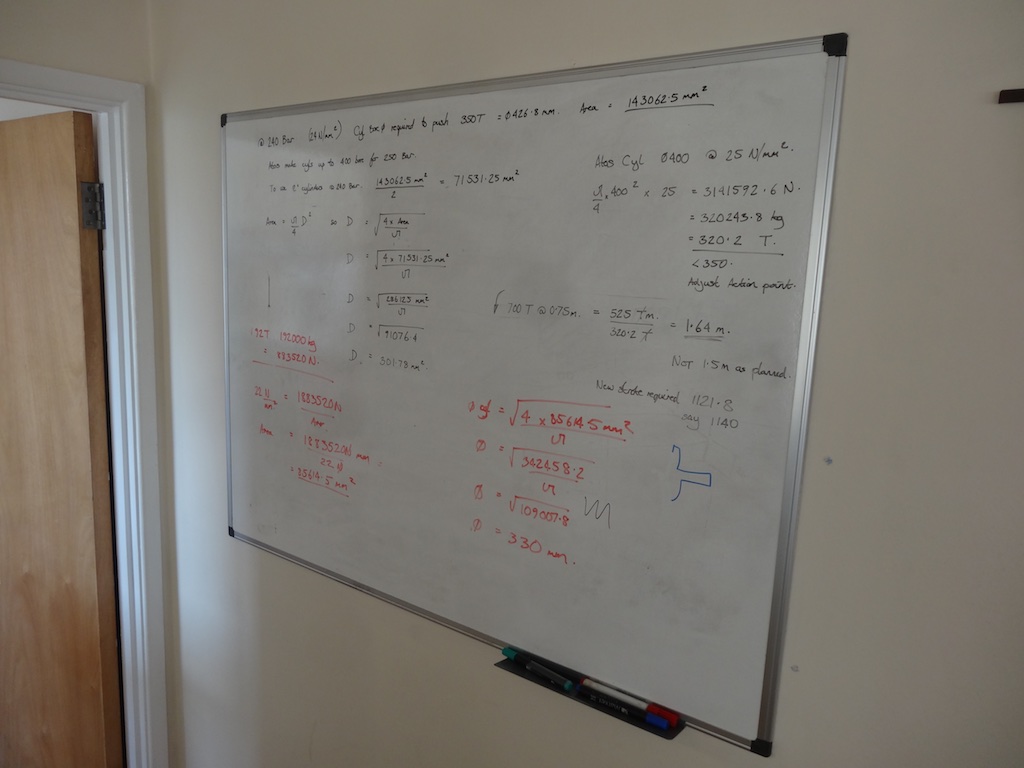 @ 240 Bar (24 N/mm²) Cyl Bore ø required to push 350T = ø426.8 mm. Area = 143062.5 mm²
Atos make cyls up to 400 bore for 250 Bar.
To use 2 cylinders @ 240 Bar. 143062.5 mm² / 2 = 71531.25 mm²
Area = π/4 D² so D = √(4 x Area / π)
D = √(4 x 71531.25 mm² / π)
D = √(286125 mm² / π)
D = √91076.4
D. = 301.78 mm².
Atos Cyl ø400 @ 25 N/mm².
π/4 x 400² x 25 = 3141592.6 N.
= 320245.8 kg
= 320.2 T.
< 350.
Adjust Action point.
700 T @ 0.75m. = 525 Tm. / 320.2 T = 1.64 m.
NOT 1.5m as planned.
New Stroke required 1121.8
say 1140
192T 192000 kg
= 1883520 N.
22 N/mm² = 1883520N / Area
Area = 1883520N mm / 22 N
= 85614.5 mm²
ø cyl = √(4 x 85614.5 mm² / π)
ø = √(342458.2 / π)
ø = √109007.8
ø = 330 mm.